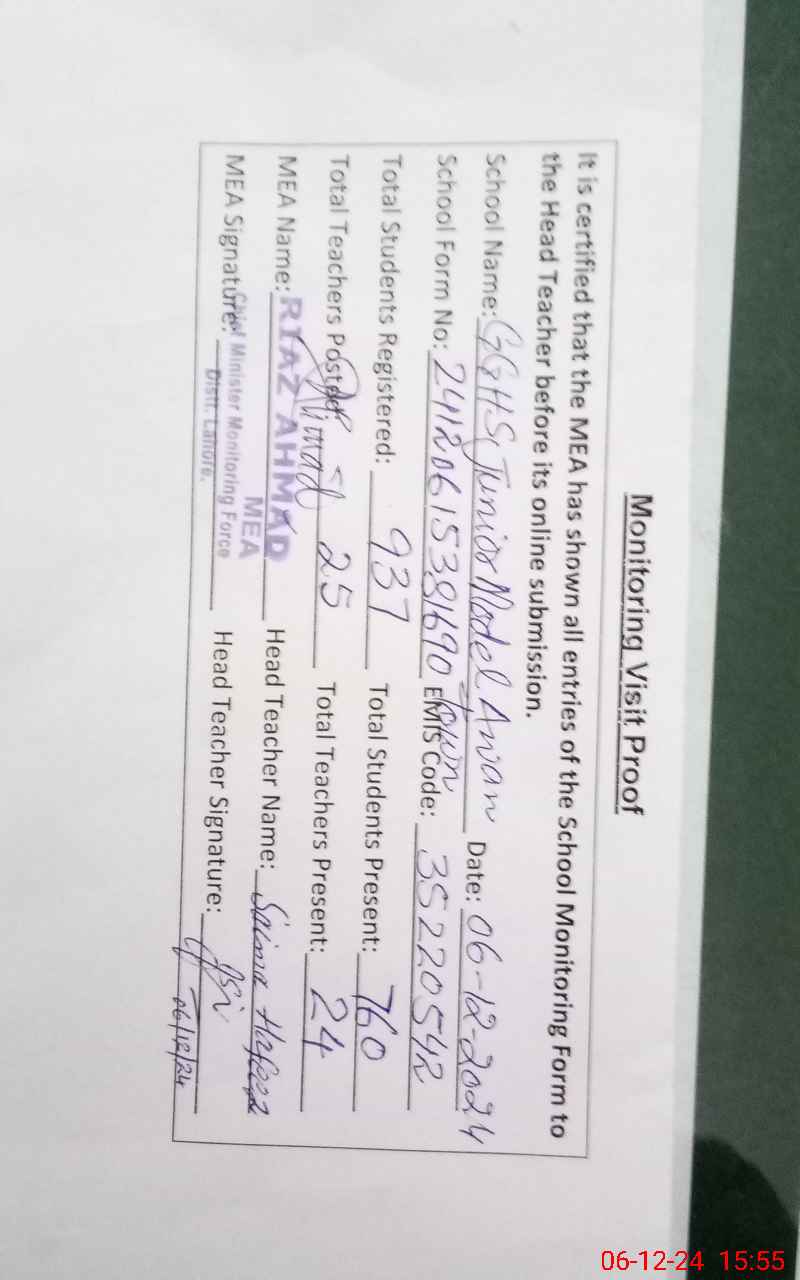 Monitoring Visit Proof
It is certified that the MEA has shown all entries of the School Monitoring Form to
the Head Teacher before its online submission.
School Name: GGHS, Junior Model Awan Town Date: 06-12-2024
School Form No: 24120615381690 EMIS Code: 35220542
Total Students Registered: 937 Total Students Present: 760
Total Teachers Posted: 25 Total Teachers Present: 24
MEA Name: RIAZ AHMAD Head Teacher Name: Saima
MEA
MEA Signature: Head Teacher Signature:
Chief Minister Monitoring Force
Distt. Lahore.
06/12/24
06-12-24 15:55